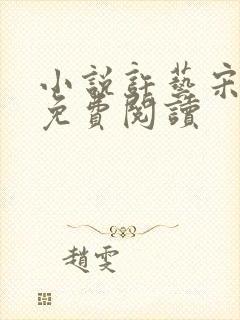 小說許藝宋
免費閱讀
趙雯